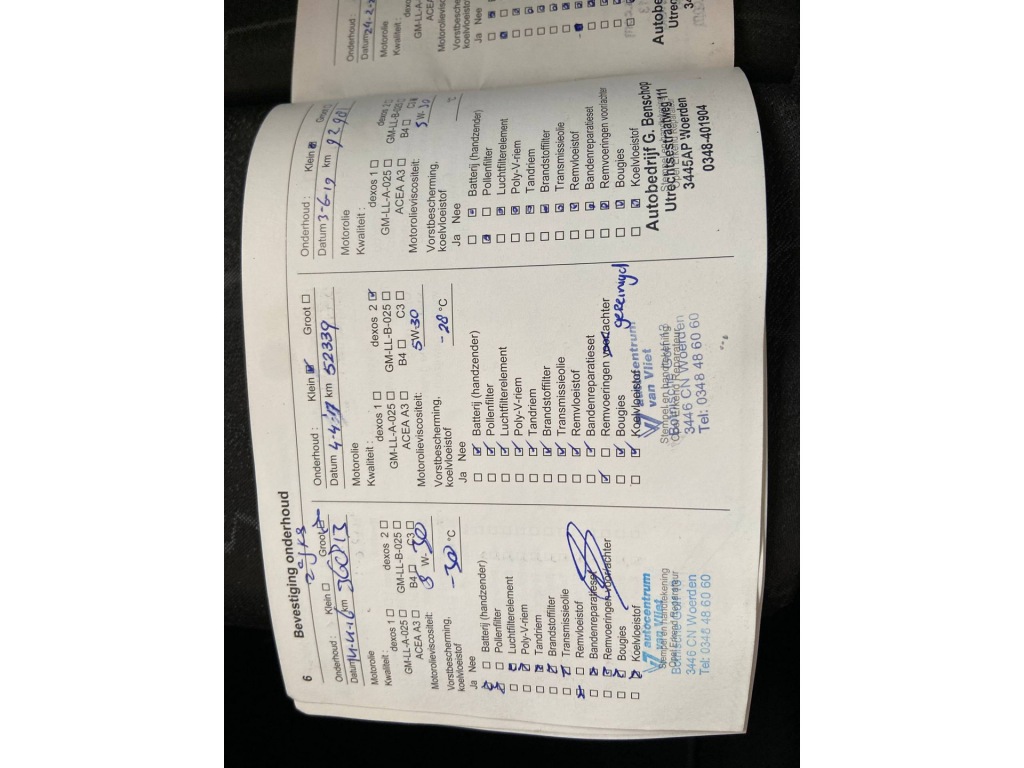 6
Bevestiging onderhoud
2ejks
Onderhoud : Klein Groot
Datum 14-4-16 km 36813
Motorolie
Kwaliteit : dexos 1 dexos 2
GM-LL-A-025 GM-LL-B-025
ACEA A3 B4 C3
Motorolieviscositeit: W-30
Vorstbescherming,
koelvloeistof -30 °C
Ja Nee
Batterij (handzender)
Pollenfilter
Luchtfilterelement
Poly-V-riem
Tandriem
Brandstoffilter
Transmissieolie
Remvloeistof
Bandenreparatieset
Remvoeringen voor/achter
Bougies
Koelvloeistof
autocentrum
van Vliet
Stempel en handtekening
Opel Erkend Reparateur
3446 CN Woerden
Tel: 0348 48 60 60
Onderhoud : Klein Groot
Datum 4-4-17 km 52339
Motorolie
Kwaliteit : dexos 1 dexos 2
GM-LL-A-025 GM-LL-B-025
ACEA A3 B4 C3
Motorolieviscositeit: 5W-30
Vorstbescherming,
koelvloeistof -28 °C
Ja Nee
Batterij (handzender)
Pollenfilter
Luchtfilterelement
Poly-V-riem
Tandriem
Brandstoffilter
Transmissieolie
Remvloeistof
Bandenreparatieset
Remvoeringen voor/achter gereinigd
Bougies
Koelvloeistof
autocentrum
van Vliet
Stempel en handtekening
Opel Erkend Reparateur
3446 CN Woerden
Tel: 0348 48 60 60
Onderhoud : Klein Groot
Datum 3-6-19 km 92901
Motorolie
Kwaliteit : dexos 1 dexos 2
GM-LL-A-025 GM-LL-B-025
ACEA A3 B4 C3
Motorolieviscositeit: 5W-30
Vorstbescherming,
koelvloeistof
Ja Nee
Batterij (handzender)
Pollenfilter
Luchtfilterelement
Poly-V-riem
Tandriem
Brandstoffilter
Transmissieolie
Remvloeistof
Bandenreparatieset
Remvoeringen voor/achter
Bougies
Koelvloeistof
Autobedrijf G. Benschop
Utrechtsestraatweg 111
3445AP Woerden
0348-401904
Onderhoud :
Datum 24-2-2
Motorolie
Kwaliteit :
GM-LL-A
ACEA
Motorolievi
Vorstbesche
koelvloeistof
Ja Nee
Autobe
Utrec